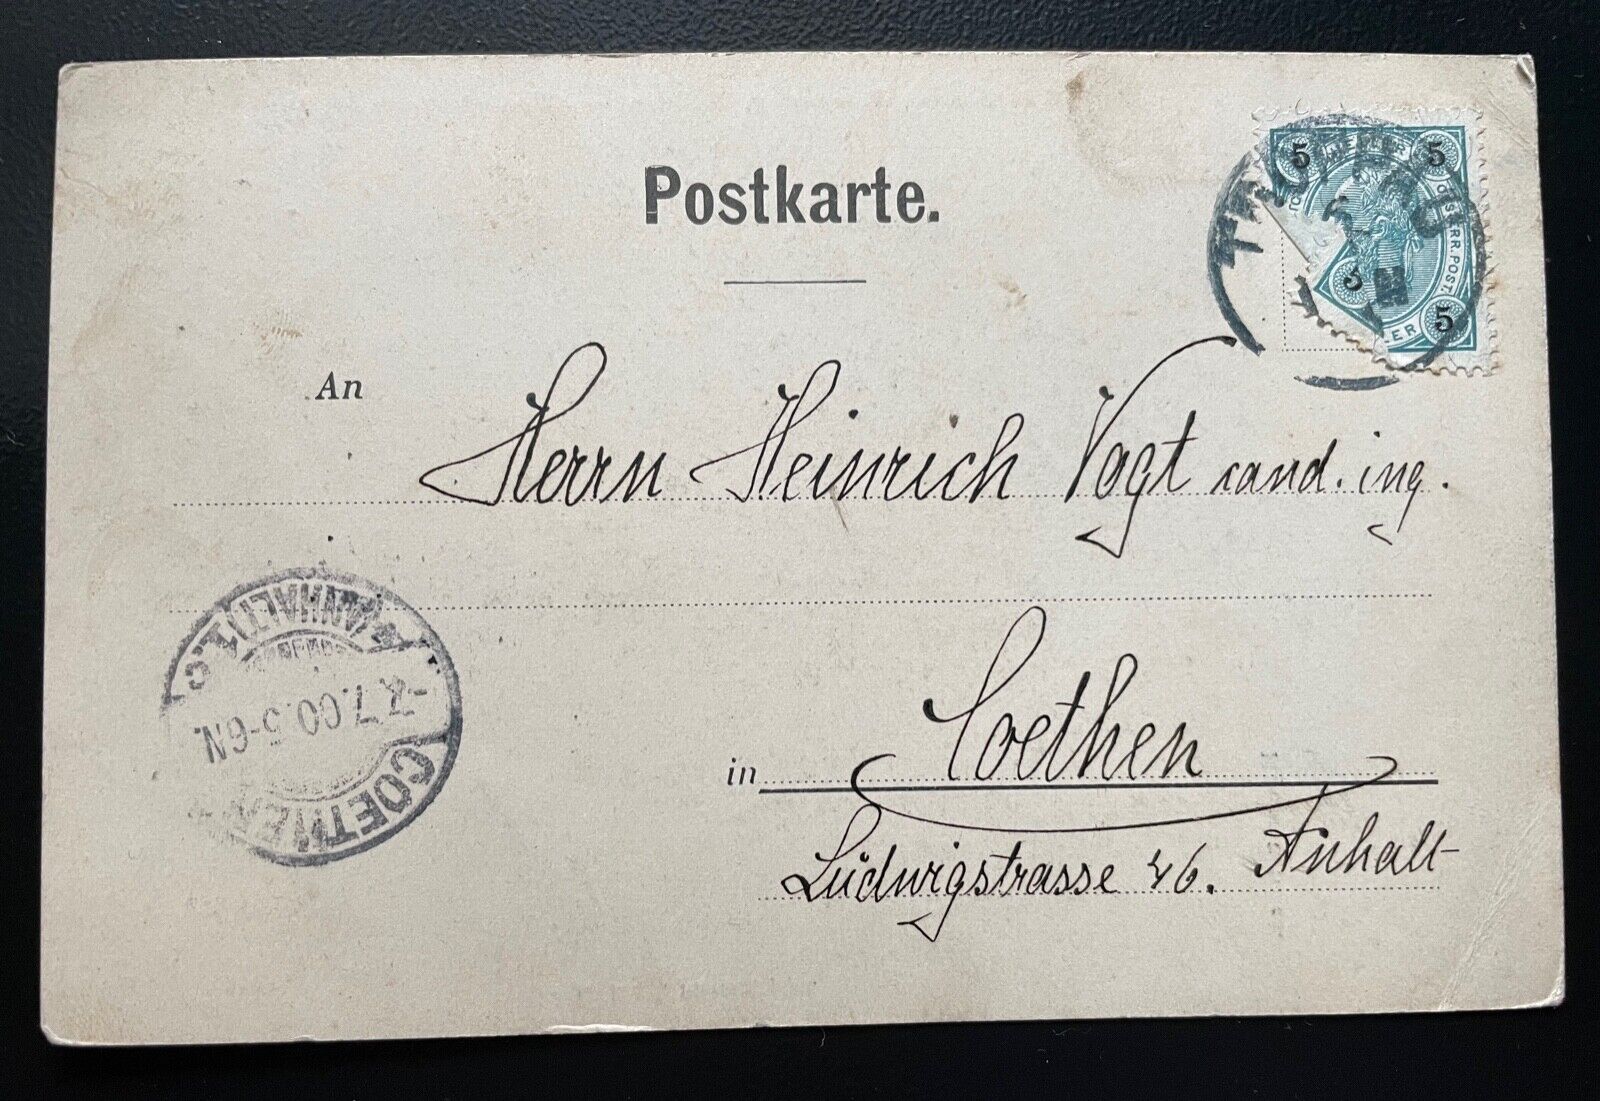 Postkarte.
5 HELLER 5
ÖSTERR. POST.
5 5
An
Herrn Heinrich Vogt cand. ing.
(ANHALT) 1.c
7.00.5-6N.
COETHEN
in Coethen
Lüdwigstrasse 46. Anhalt-